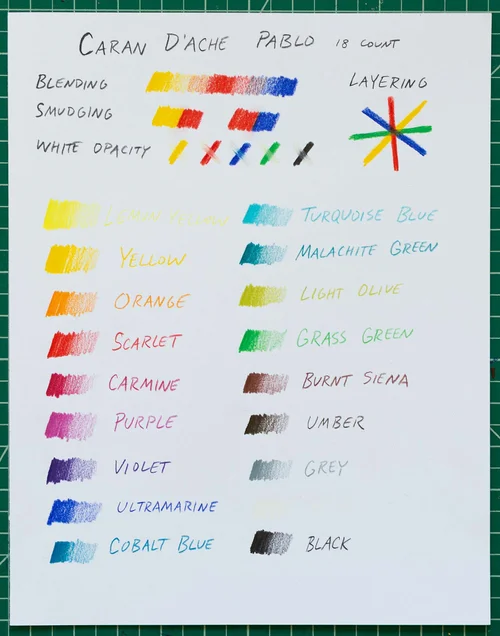 CARAN D'ACHE PABLO 18 COUNT
BLENDING
LAYERING
SMUDGING
WHITE OPACITY
LEMON YELLOW
YELLOW
ORANGE
SCARLET
CARMINE
PURPLE
VIOLET
ULTRAMARINE
COBALT BLUE
TURQUOISE BLUE
MALACHITE GREEN
LIGHT OLIVE
GRASS GREEN
BURNT SIENA
UMBER
GREY
BLACK